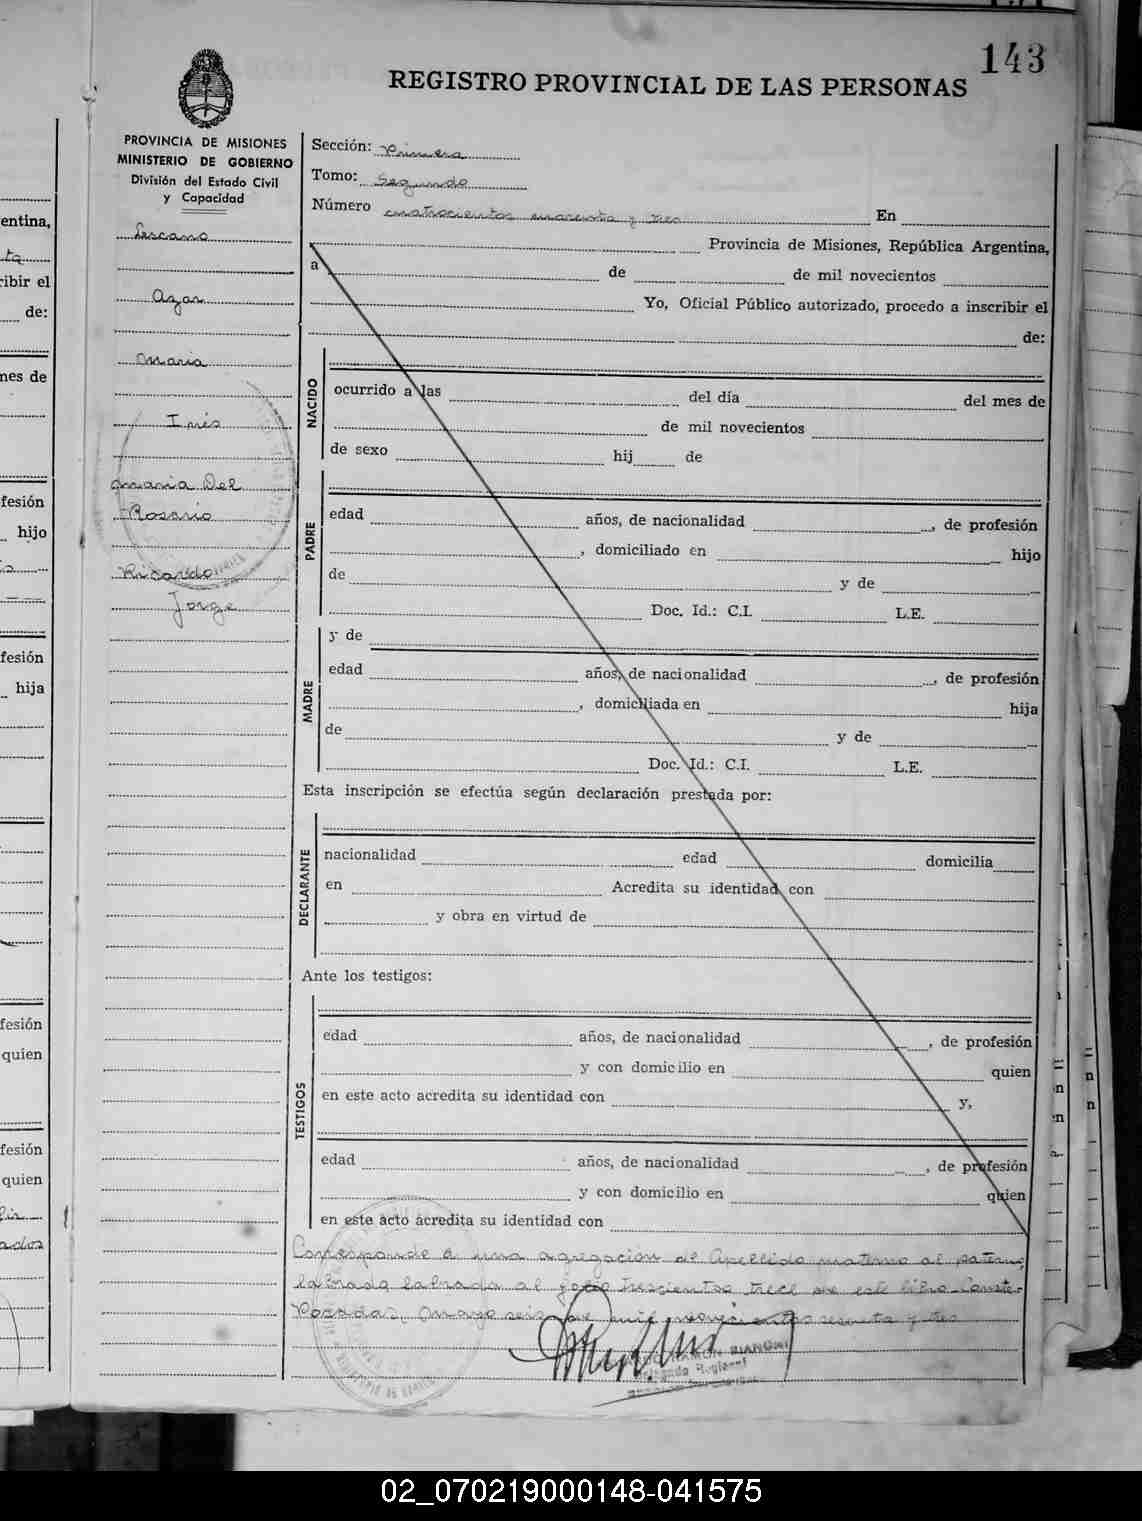 143
REGISTRO PROVINCIAL DE LAS PERSONAS
PROVINCIA DE MISIONES
MINISTERIO DE GOBIERNO
División del Estado Civil
y Capacidad
Lescano
Azar
Maria
Inés
Maria Del
Rosario
Ricardo
Jorge
Sección: Primera
Tomo: Segundo
Número cuatrocientos cuarenta y tres En
Provincia de Misiones, República Argentina,
a de de mil novecientos
Yo, Oficial Público autorizado, procedo a inscribir el
de:
NACIDO
ocurrido a las del día del mes de
de mil novecientos
de sexo hij de
PADRE
edad años, de nacionalidad , de profesión
, domiciliado en hijo
de y de
Doc. Id.: C.I. L.E.
MADRE
y de
edad años, de nacionalidad , de profesión
, domiciliada en hija
de y de
Doc. Id.: C.I. L.E.
Esta inscripción se efectúa según declaración prestada por:
DECLARANTE
nacionalidad edad domicilia
en Acredita su identidad con
y obra en virtud de
Ante los testigos:
TESTIGOS
edad años, de nacionalidad , de profesión
y con domicilio en quien
en este acto acredita su identidad con y,
edad años, de nacionalidad , de profesión
y con domicilio en quien
en este acto acredita su identidad con
Corresponde a una agregación de Apellido materno al paterno
labrada labrada al folio trescientos trece de este libro Conste.-
Posadas, Mayo seis de mil novecientos sesenta y tres
RAMON BIANCHI
Delegado Regional
entina,
ibir el
de:
mes de
fesión
hijo
fesión
hija
fesión
quien
fesión
quien
02_070219000148-041575